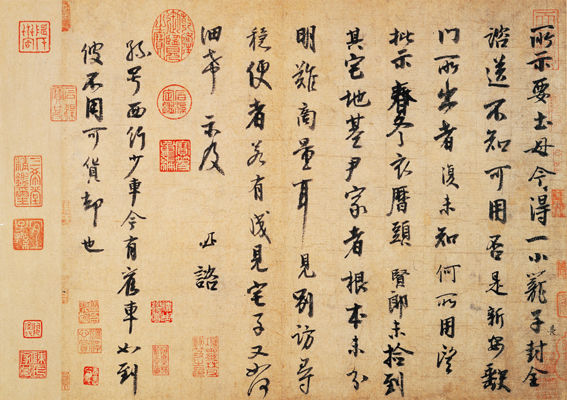 所示要土母今得一小籠子封全
諮送不知可用否是新安缺
門所出者復未知何所用望
批示春冬衣曆頭賢郎未檢到
其宅地基尹家者根本未分
明難商量耳見別訪尋
穩便者若有成見宅子又如何
細希示及諮
孫號西行少車今有舊車如到
彼不用可貨却也